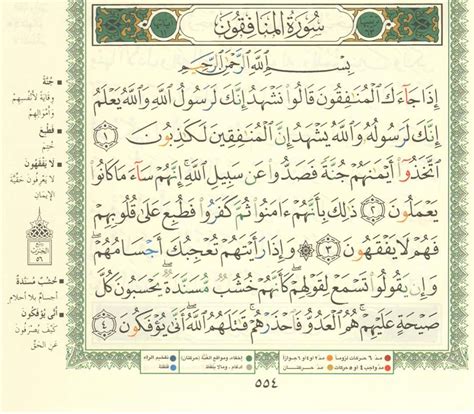 سُورَةُ المُنَافِقُونَ
بِسْمِ ٱللَّهِ ٱلرَّحْمَٰنِ ٱلرَّحِيمِ
إِذَا جَآءَكَ ٱلْمُنَٰفِقُونَ قَالُوا۟ نَشْهَدُ إِنَّكَ لَرَسُولُ ٱللَّهِ وَٱللَّهُ يَعْلَمُ
إِنَّكَ لَرَسُولُهُۥ وَٱللَّهُ يَشْهَدُ إِنَّ ٱلْمُنَٰفِقِينَ لَكَٰذِبُونَ ١
ٱتَّخَذُوٓا۟ أَيْمَٰنَهُمْ جُنَّةً فَصَدُّوا۟ عَن سَبِيلِ ٱللَّهِ إِنَّهُمْ سَآءَ مَا كَانُوا۟
يَعْمَلُونَ ٢ ذَٰلِكَ بِأَنَّهُمْ ءَامَنُوا۟ ثُمَّ كَفَرُوا۟ فَطُبِعَ عَلَىٰ قُلُوبِهِمْ
فَهُمْ لَا يَفْقَهُونَ ٣ وَإِذَا رَأَيْتَهُمْ تُعْجِبُكَ أَجْسَامُهُمْ
وَإِن يَقُولُوا۟ تَسْمَعْ لِقَوْلِهِمْ كَأَنَّهُمْ خُشُبٌ مُّسَنَّدَةٌ يَحْسَبُونَ كُلَّ
صَيْحَةٍ عَلَيْهِمْ هُمُ ٱلْعَدُوُّ فَٱحْذَرْهُمْ قَٰتَلَهُمُ ٱللَّهُ أَنَّىٰ يُؤْفَكُونَ ٤
جُنَّةً
وِقَايَةً لأَنْفُسِهِمْ
وَأَمْوَالِهِمْ
فَطُبِعَ
خُتِمَ
لَا يَفْقَهُونَ
لا يَعْرِفُونَ حَقِّيَّة
الإِيمَانِ
خُشُبٌ مُسَنَّدَةٌ
أَجْسَامٌ بِلا أَحْلامٍ
أَنَّىٰ يُؤْفَكُونَ
كَيْفَ يُصْرَفُونَ
عَنِ الحَقِّ
مد ٦ حركات لزوماً
مد ٢ او ٤ او ٦ جوازاً
مد واجب ٤ او ٥ حركات
مد حركتان
إخفاء، ومواقع الغنّة (حركتان)
ادغام، ومالا يُلفظ
تفخيم الراء
قلقلة
٥٥٤